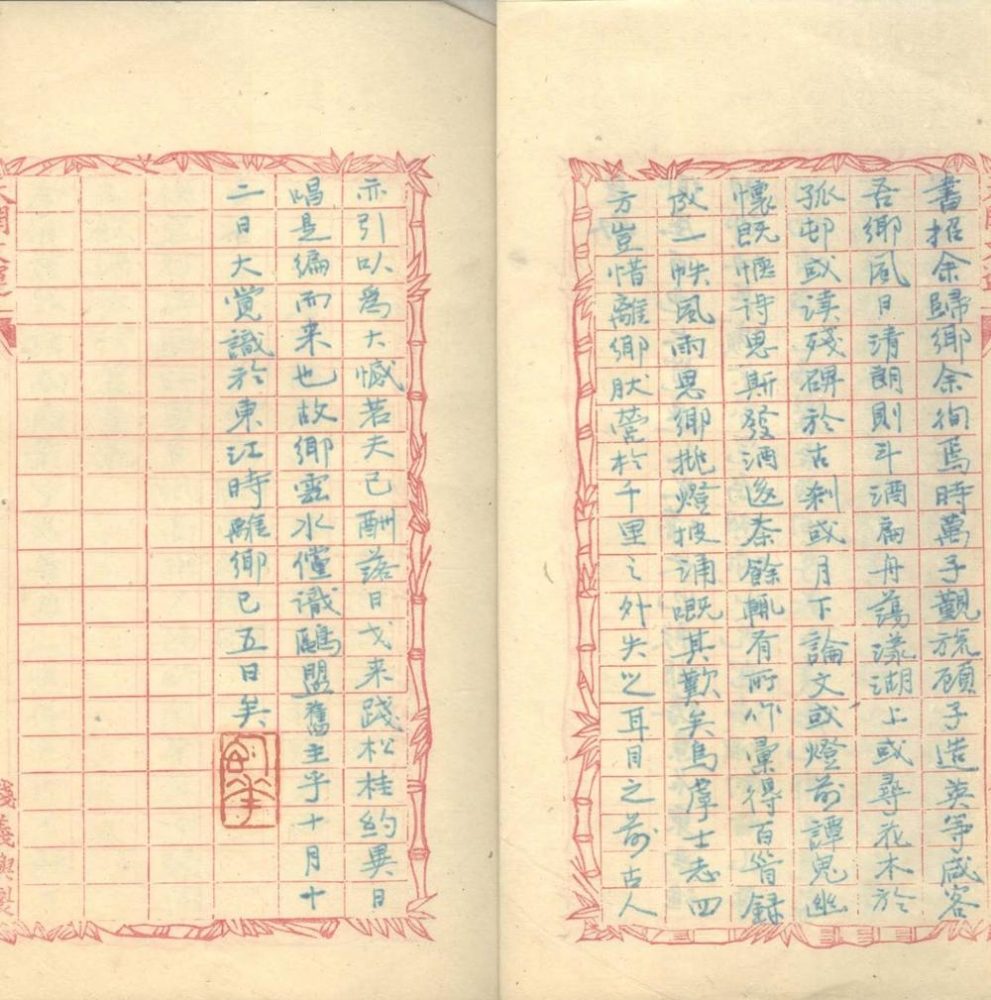 書招余歸鄉余徇焉時萬子觀旒顧子造英等咸客
吾鄉風日清朗則斗酒扁舟蕩漾湖上或尋花木於
孤邨或读殘碑於古刹或月下論文或燈前譚鬼幽
懷既愜诗思斯發酒邊茶餘輒有所作彙得百首録
成一帙風雨思鄉挑燈披诵嘅其歎矣烏虖士志四
方豈惜離鄉肰營於千里之外失之耳目之前古人
亦引以為大憾若夫已酬落日戈来踐松桂約異日
唱是編而来也故鄉雲水儻識鷗盟舊主乎十月十
二日大觉識於東江時離鄉已五日矣